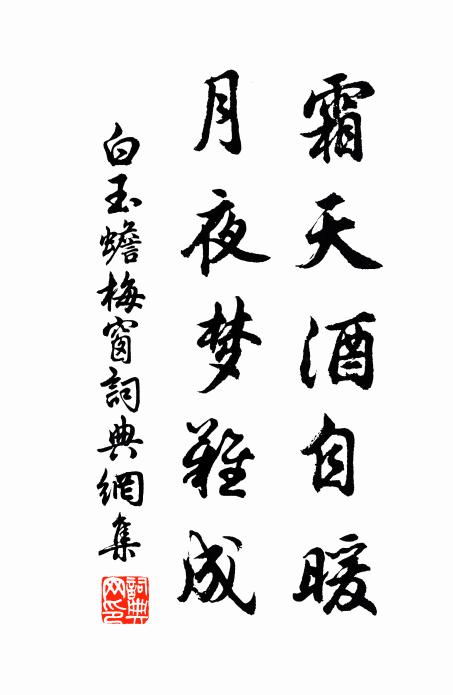 霜天酒自暖
月夜梦難成
白玉蟾梅窗詞典網集
詞典网印